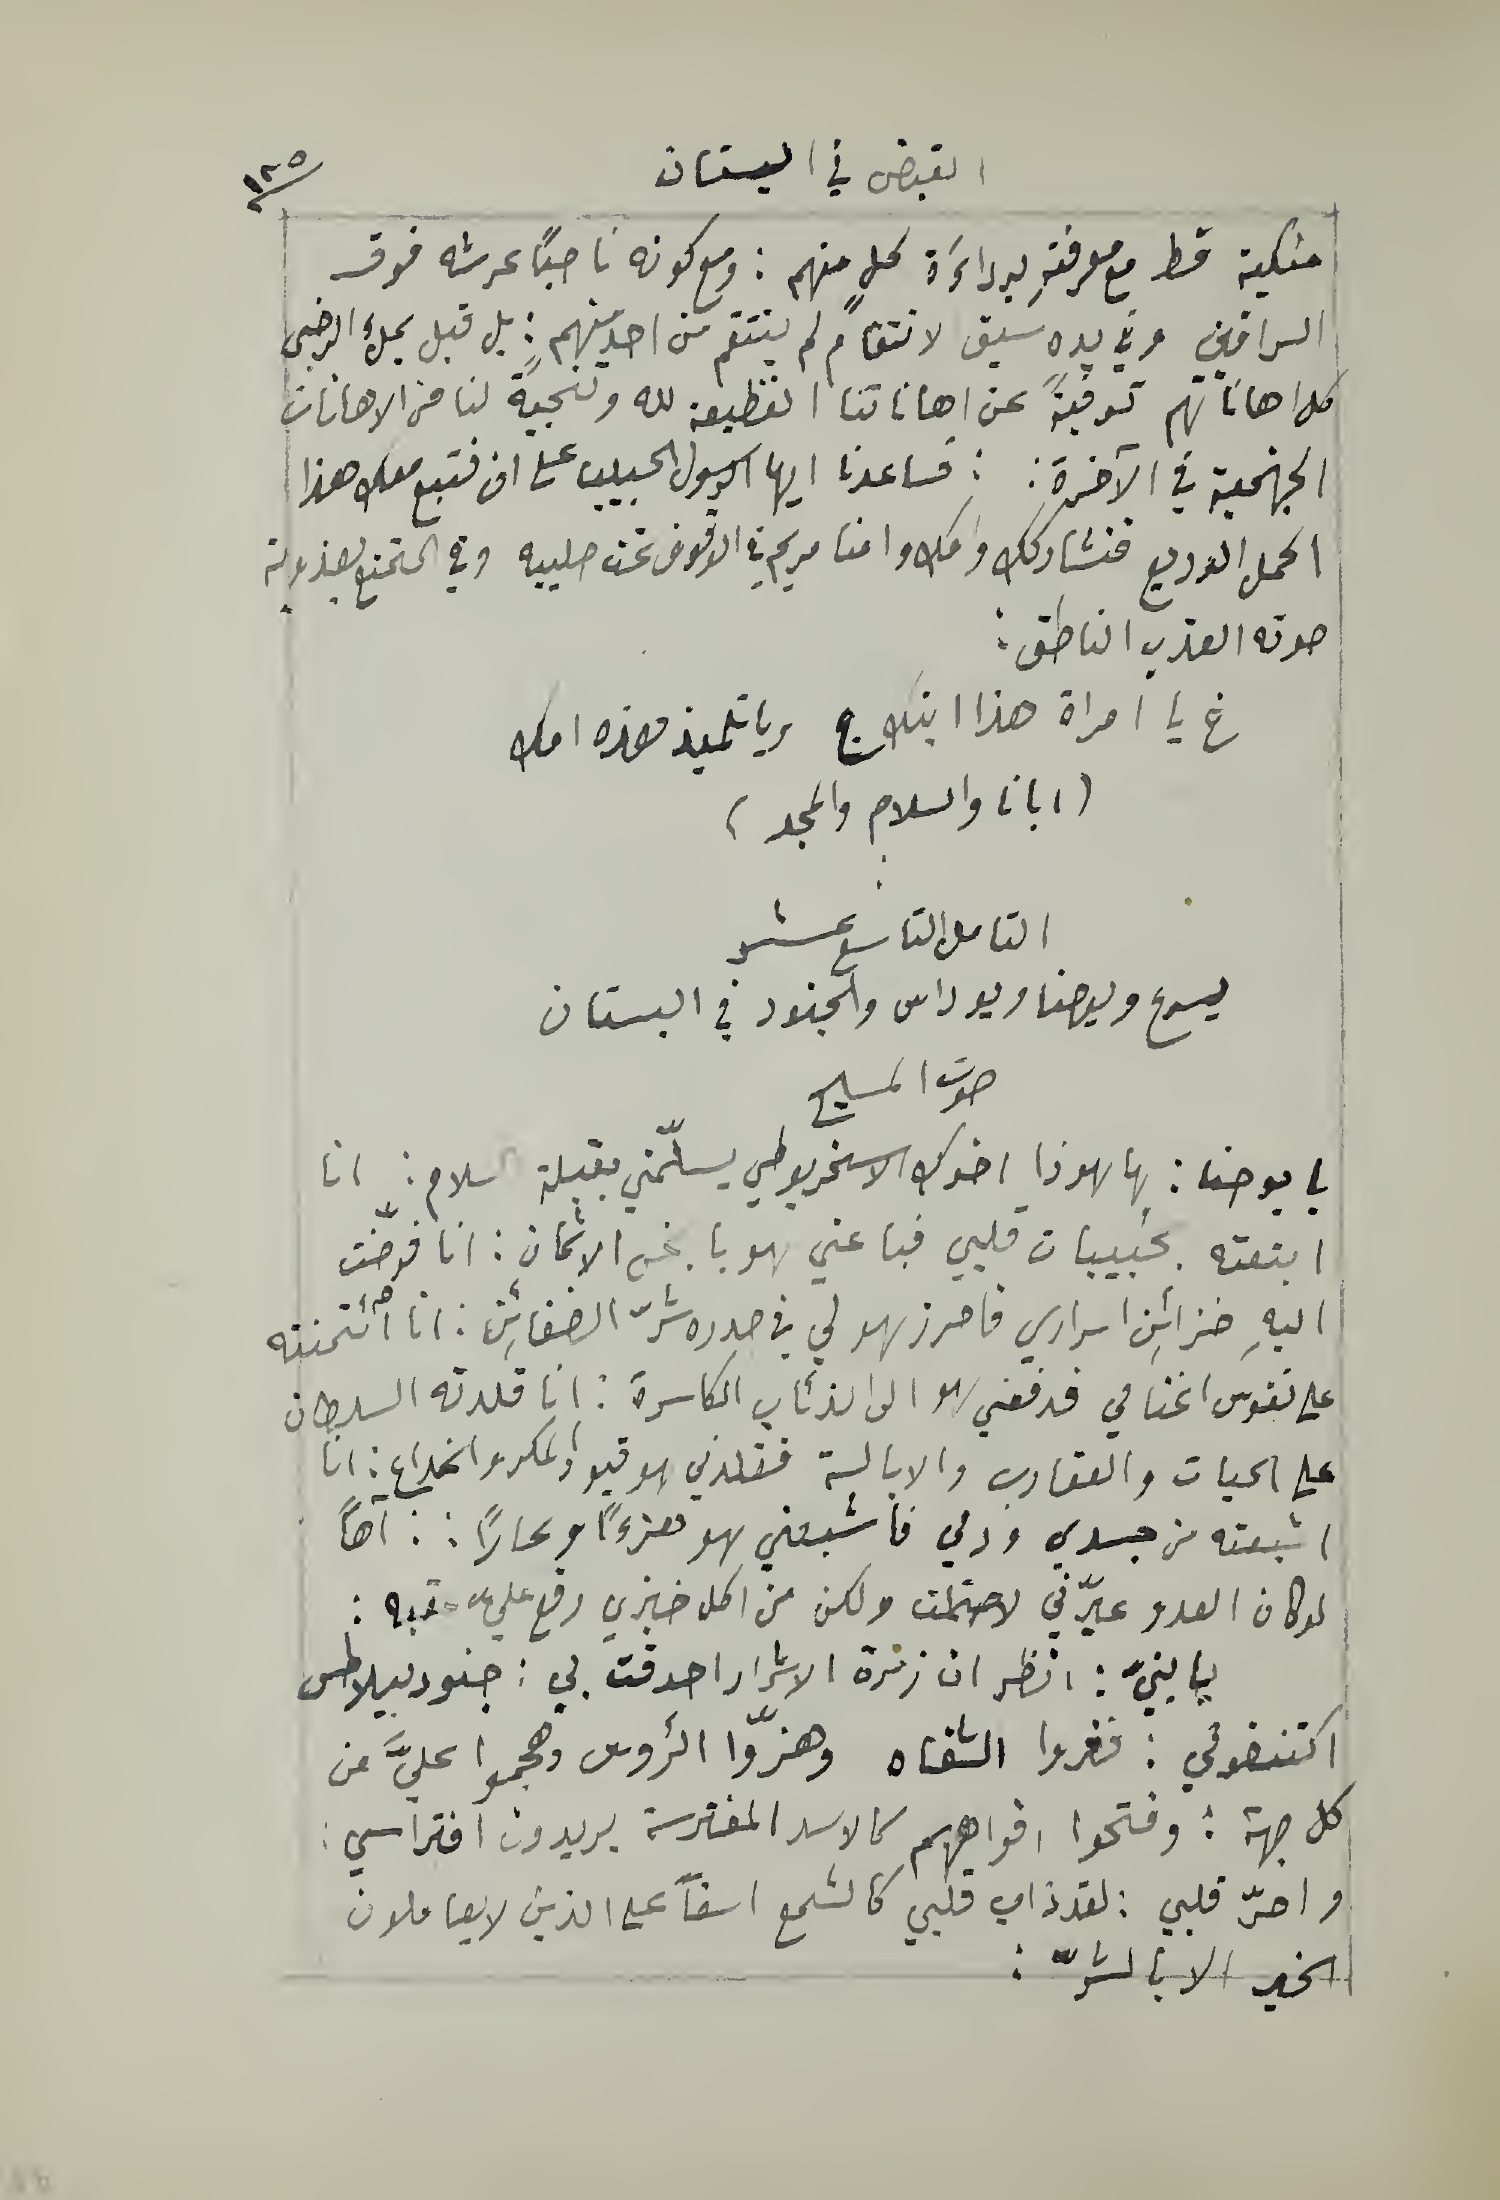 القبض في البستان
١٣٥
منكية قط مع معرفتهِ برداءَة كلٍ منهم : ومع كونه ناصبًا عرشه فوق
السرافيني وفي يده سيف لانتقام لم ينتقم من احدٍ منهم : بل قبل بملءِ الرضى
كل اهاناتهم توفيةً عن اهاناتنا الفظيعة لله وتنجيةً لنا من الاهانات
الجهنمية في الآخرة : : فساعدنا ايها الرسول الحبيب على ان نتبع معك هذا
الحمل الوديع فنشاركك وامك وامنا مريم في الوقوف تحت صليبه وفي التمتع بعذوبة
صوته العذب الناطق :
غ يا امراة هذا ابنك ج ويا تلميذ هذه امك
( ابانا والسلام والمجد )
التامل التاسع عشر
يسوع ويوحنا ويوداس والجنود في البستان
صوت المسيح
يا يوحنا : ها هوذا اخوك الاسخريوطي يسلّمني بقبلة السلام : انا
ابتعته بحبيبات قلبي فباعني هو بابخس الاثمان : انا فوضّت
اليهِ خزائن اسراري فاحرز هو لي في صدره شرّ الضغائن : انا أئتمنته
على نفوس اغنامي فدفعني هو الى الذئاب الكاسرة : انا قلدته السلطان
على الحيات والعقارب والابالسة فقلدني هو قيود المكر والخداع : انا
اشبعته من جسدي ودمي فاشبعني هو هزءًا وعارًا : : آهاً
لو كان العدو عيّرني لاحتملت ولكن من اكل خبزي رفع عليّ عقبه :
يا بنيّ : انظر ان زمرة الاشرار احدقت بي : جنود بيلاطس
اكتنفوني : فغروا الشفاه وهزّوا الرؤوس وهجموا عليَّ من
كل جهة : وفتحوا افواههم كالاسد المفترسة يريدون افتراسي :
واحرّ قلبي : لقد ذاب قلبي كالشمع اسفاً على الذين لا يعاملون
الخير الا بالشرّ :